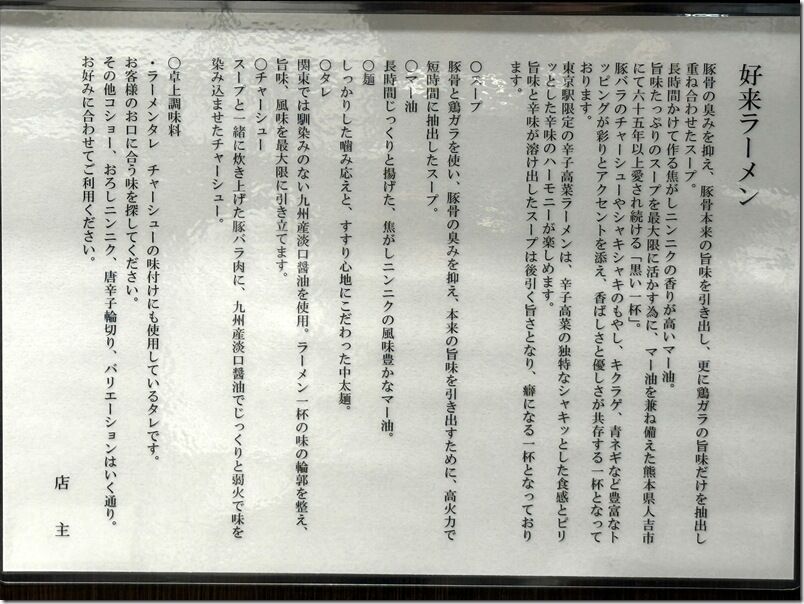 好来ラーメン
豚骨の臭みを抑え、豚骨本来の旨味を引き出し、更に鶏ガラの旨味だけを抽出し
重ね合わせたスープ。
長時間かけて作る焦がしニンニクの香りが高いマー油。
旨味たっぷりのスープを最大限に活かす為に、マー油を兼ね備えた熊本県人吉市
にて六十五年以上愛され続ける「黒い一杯」。
豚バラのチャーシューやシャキシャキのもやし、キクラゲ、青ネギなど豊富なト
ッピングが彩りとアクセントを添え、香ばしさと優しさが共存する一杯となって
おります。
東京駅限定の辛子高菜ラーメンは、辛子高菜の独特なシャキッとした食感とピリ
ッとした辛味のハーモニーが楽しめます。
旨味と辛味が溶け出したスープは後引く旨さとなり、癖になる一杯となっており
ます。
〇スープ
豚骨と鶏ガラを使い、豚骨の臭みを抑え、本来の旨味を引き出すために、高火力で
短時間に抽出したスープ。
〇マー油
長時間じっくりと揚げた、焦がしニンニクの風味豊かなマー油。
〇麺
しっかりした噛み応えと、すすり心地にこだわった中太麺。
〇タレ
関東では馴染みのない九州産淡口醤油を使用。ラーメン一杯の味の輪郭を整え、
旨味、風味を最大限に引き立てます。
〇チャーシュー
スープと一緒に炊き上げた豚バラ肉に、九州産淡口醤油でじっくりと弱火で味を
染み込ませたチャーシュー。
〇卓上調味料
・ラーメンタレ　チャーシューの味付けにも使用しているタレです。
お客様のお口に合う味を探してください。
その他コショー、おろしニンニク、唐辛子輪切り、バリエーションはいく通り。
お好みに合わせてご利用ください。
店主